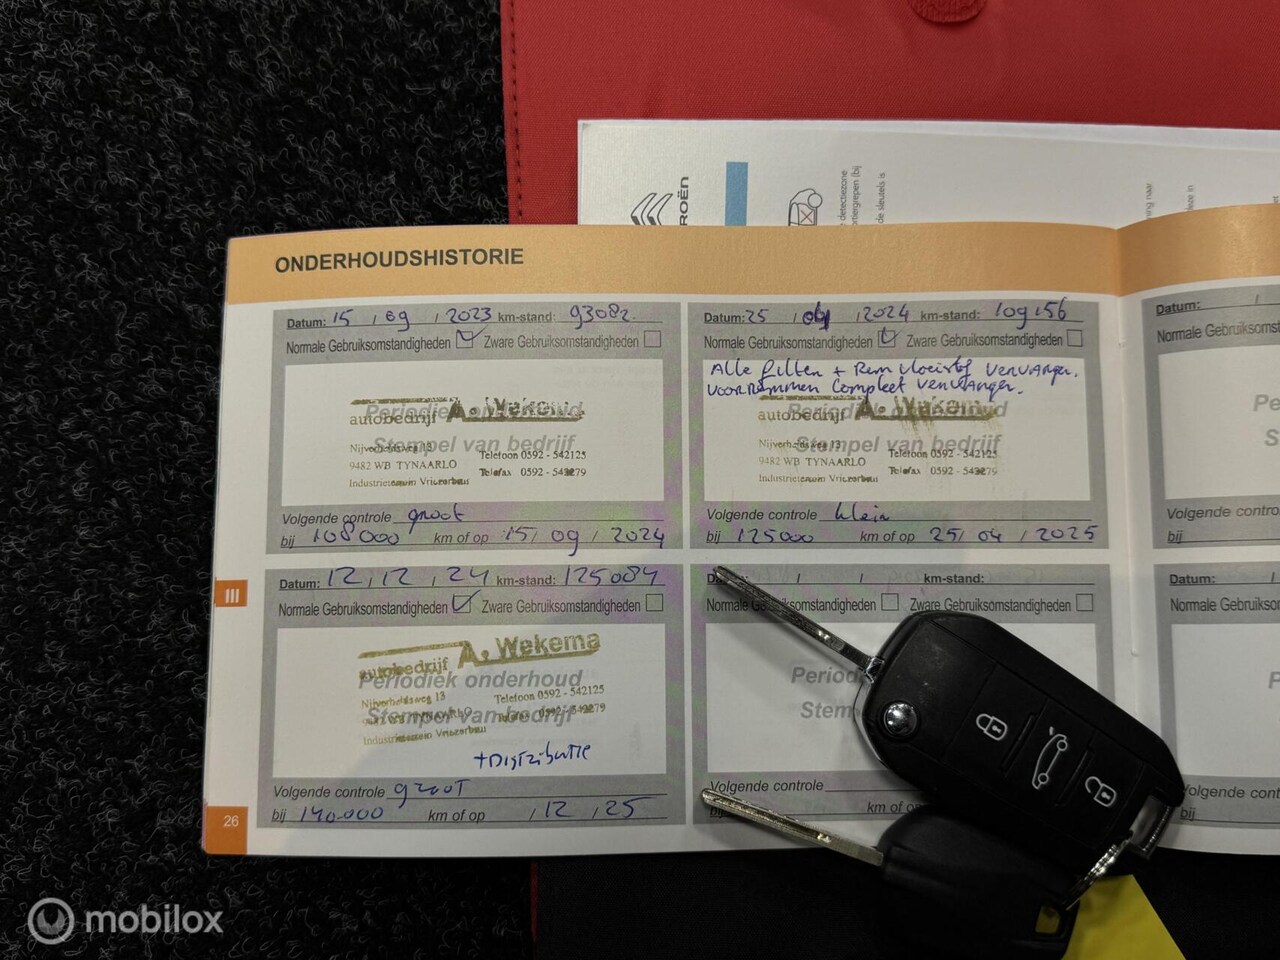 CITROËN
detectiezone
ONDERHOUDSHISTORIE
Datum: 15 / 09 / 2023 km-stand: 93082.
Normale Gebruiksomstandigheden Zware Gebruiksomstandigheden
Periodiek onderhoud
autobedrijf A. Wekema
Stempel van bedrijf
Nijverheidsweg 13 Telefoon 0592 - 542125
9482 WB TYNAARLO Telefax 0592 - 543279
Industrieterrein Vriezerbrug
Volgende controle groot
bij 108000 km of op 15 / 09 / 2024
Datum: 25 / 04 / 2024 km-stand: 109.56
Normale Gebruiksomstandigheden Zware Gebruiksomstandigheden
Alle filters + Rem vloeistof vervangen.
voorremmen compleet vervangen.
Periodiek onderhoud
autobedrijf A. Wekema
Stempel van bedrijf
Nijverheidsweg 13 Telefoon 0592 - 542125
9482 WB TYNAARLO Telefax 0592 - 543279
Industrieterrein Vriezerbrug
Volgende controle klein
bij 125000 km of op 25 / 04 / 2025
Datum: 12 / 12 / 24 km-stand: 125084
Normale Gebruiksomstandigheden Zware Gebruiksomstandigheden
autobedrijf A. Wekema
Periodiek onderhoud
Nijverheidsweg 13 Telefoon 0592 - 542125
Stempel van bedrijf
Telefax 0592 - 543279
Industrieterrein Vriezerbrug
+Distributie
Volgende controle groot
bij 140.000 km of op / 12 / 25
/ / km-stand:
Normale Gebruiksomstandigheden Zware Gebruiksomstandigheden
Volgende controle
bij km of op
Datum: /
Normale Gebruiksomst
Volgende contro
bij
Datum: /
Normale Gebruiksomst
bij
III
26
mobilox